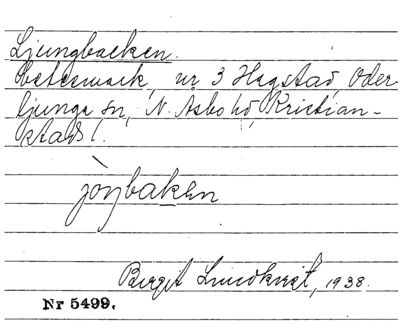 Ljungbacken.
Betesmark, nr 3 Hagstad, Oder-
ljunga sn, N. Åsbo hd, Kristian-
stads l.
jòŋbaken
Birgit Lundkvist, 1938.
Nr 5499.